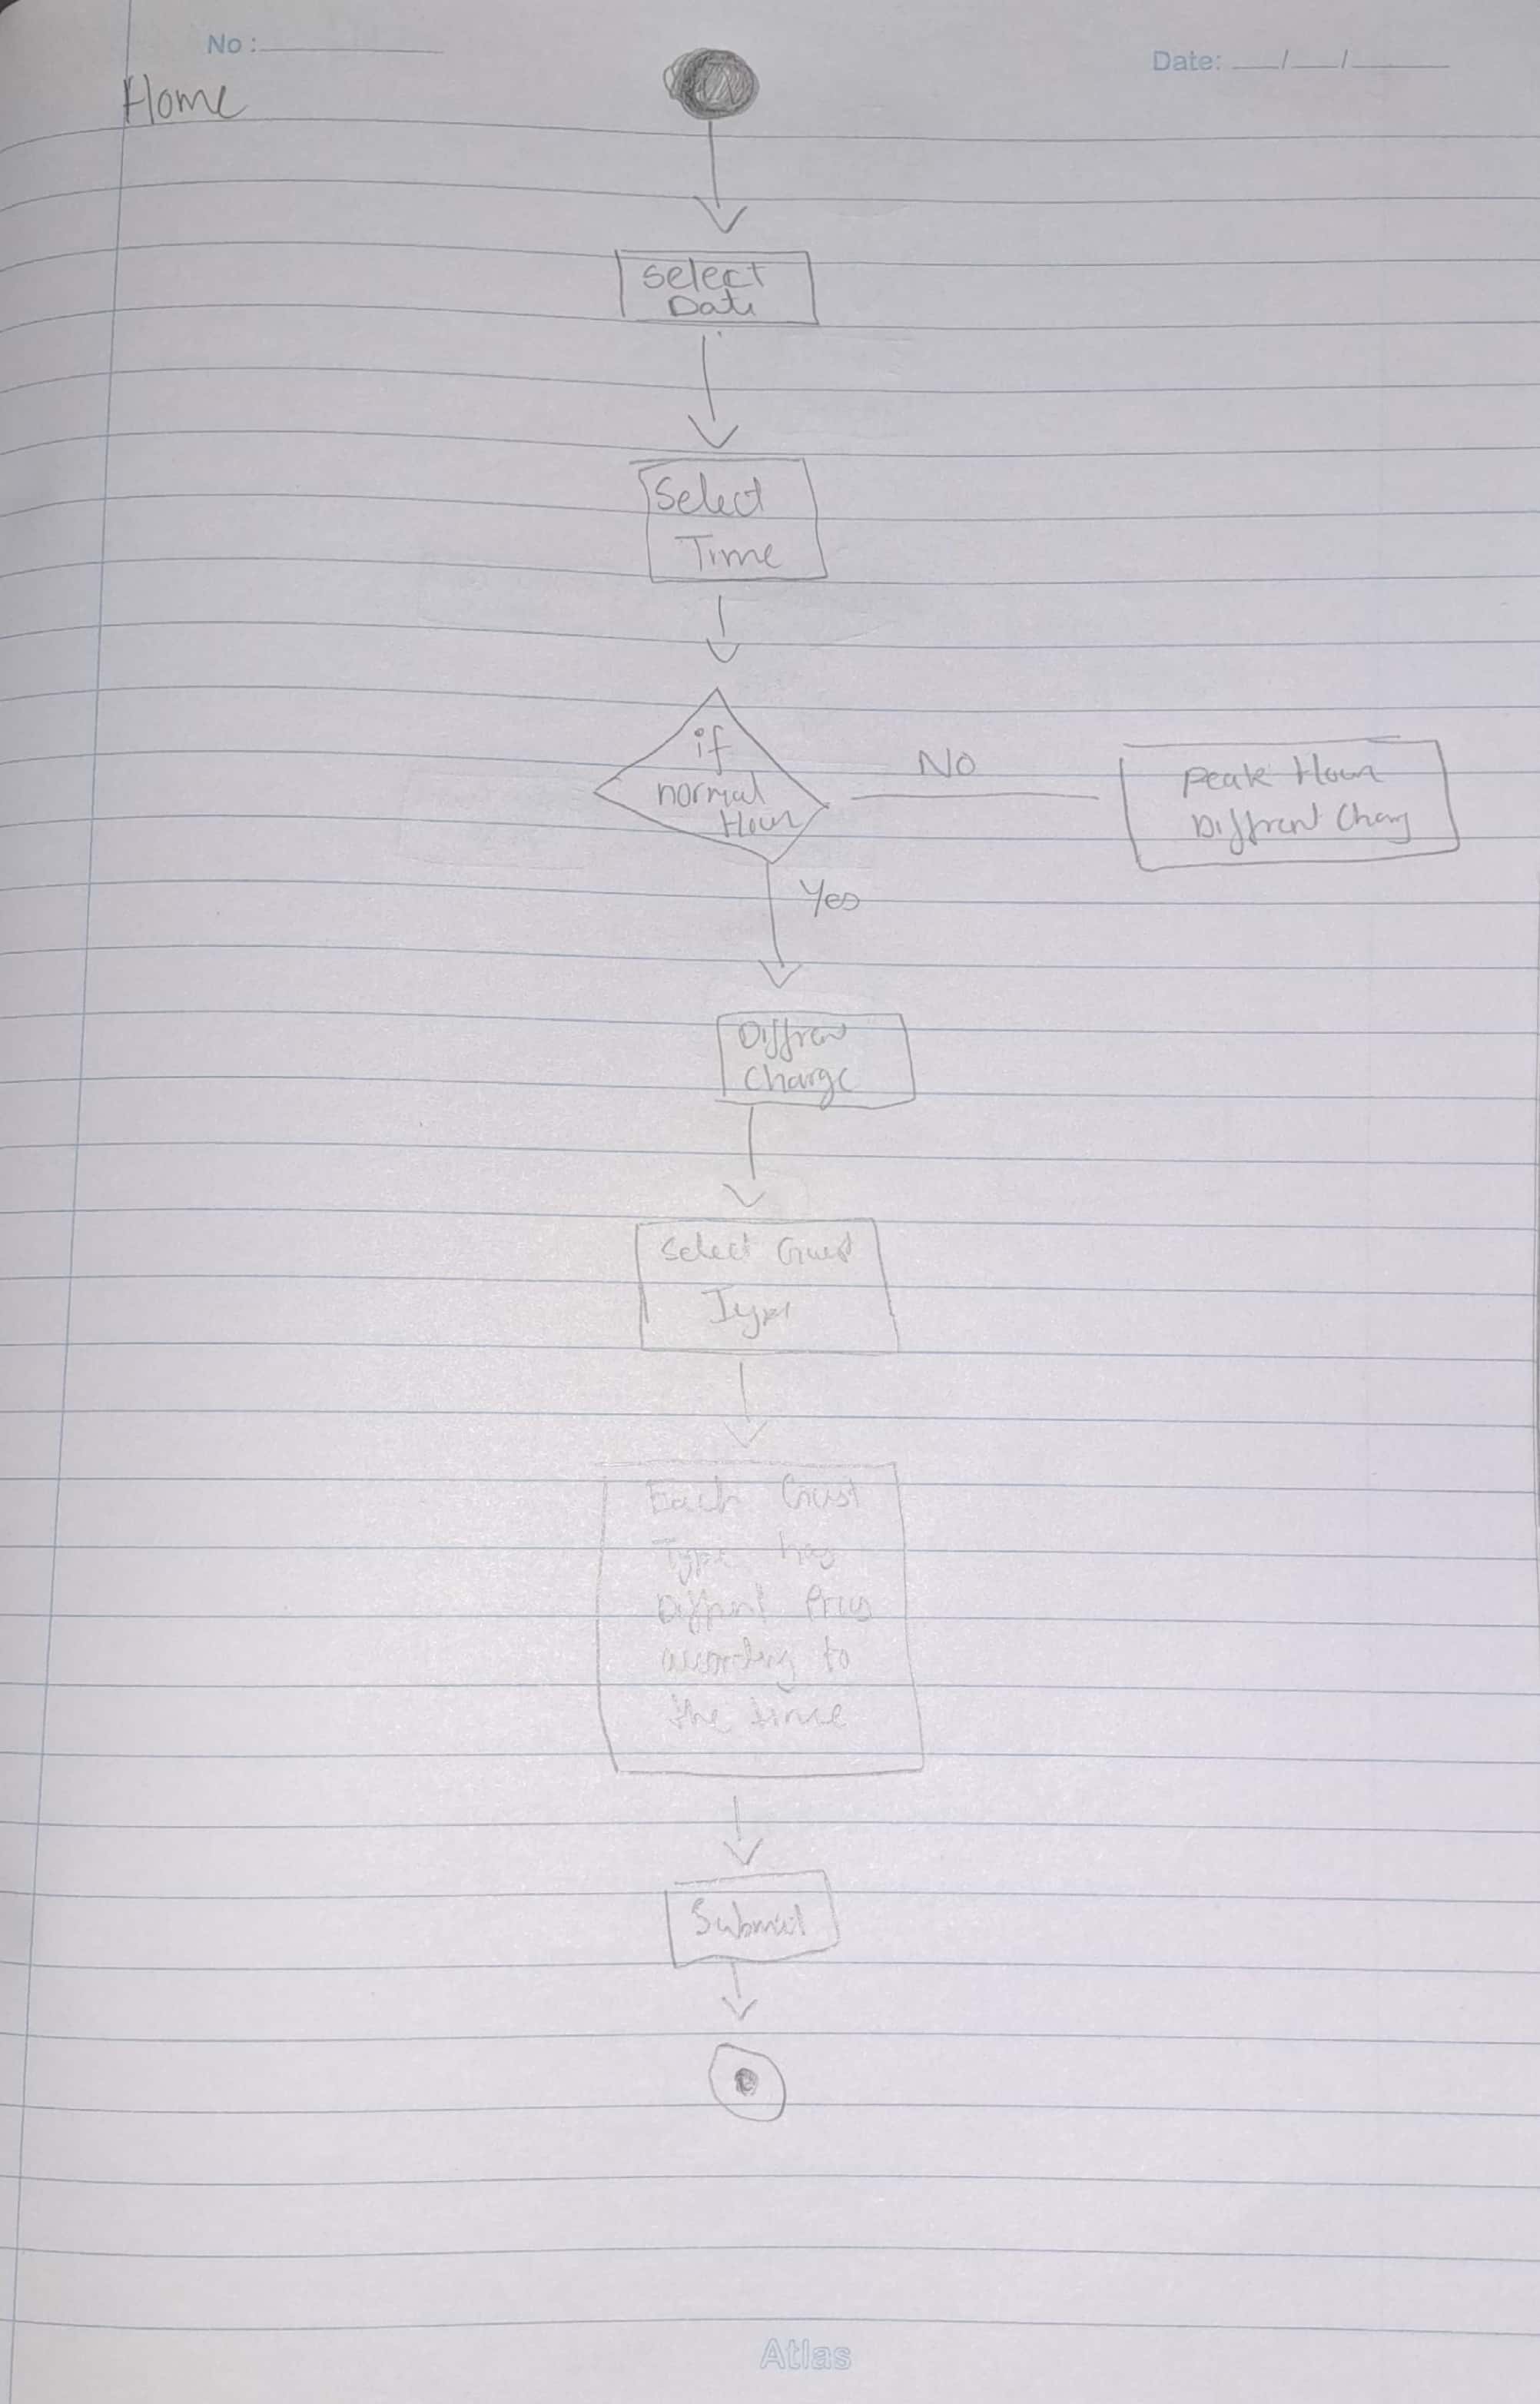 No :
Date: __/__/____
Home
Select
Date
Select
Time
if
normal
Hour
NO
Peak Hour
Diffrent Charg
Yes
Diffren
Charge
Select Guest
Type
Each Guest
Type has
Diffrent Prices
according to
the time
Submit
Atlas